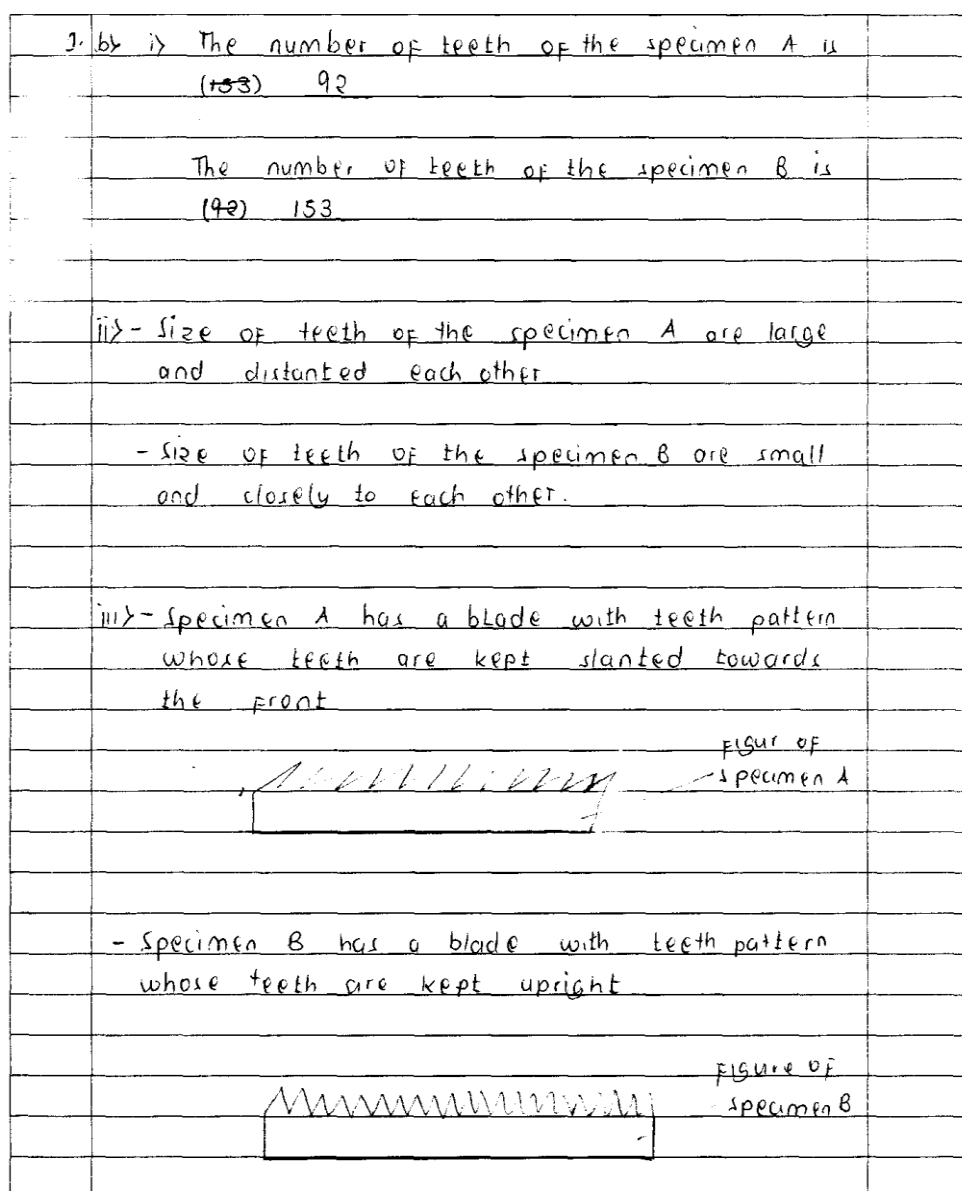 1. b) i) The number of teeth of the specimen A is
(153) 92
The number of teeth of the specimen B is
(92) 153
ii) - Size of teeth of the specimen A are large
and distanted each other
- Size of teeth of the specimen B are small
and closely to each other.
iii) - Specimen A has a blade with teeth pattern
whose teeth are kept slanted towards
the front
Figur of
specimen A
- Specimen B has a blade with teeth pattern
whose teeth are kept upright
Figure of
specimen B